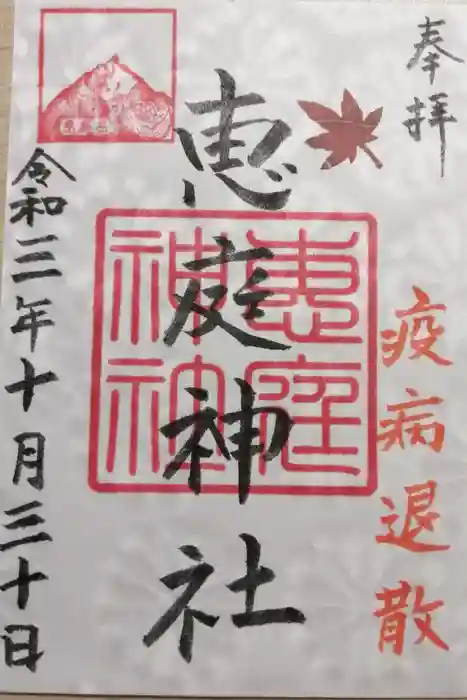 奉拝
疫病退散
恵庭神社
恵庭
神社
令和三年十月三十日